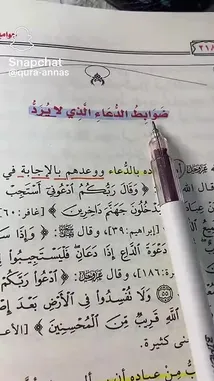 ٢١٨
Snapchat
@qura-annas
ضَوَابِطُ الدُّعَاءِ الَّذِي لَا يُرَدُّ
بالدُّعاء ووعدهم بالإجابة في
﴿ وَقَالَ رَبُّكُمُ ادْعُونِي أَسْتَجِبْ
دْخُلُونَ جَهَنَّمَ دَاخِرِينَ ﴾ [غافر: ٦٠]
[إبراهيم: ٣٩]، وقال: ﴿ وَإِذَا سَ
دَعْوَةَ الدَّاعِ إِذَا دَعَانِ فَلْيَسْتَجِيبُوا
١٨٦]، وقال ﴿ ادْعُوا رَبَّكُمْ
٥٥ وَلَا تُفْسِدُوا فِي الْأَرْضِ بَعْدَ
اللَّهِ قَرِيبٌ مِنَ الْمُحْسِنِينَ ﴾ [الأع
نى كثيرة.
من عباده